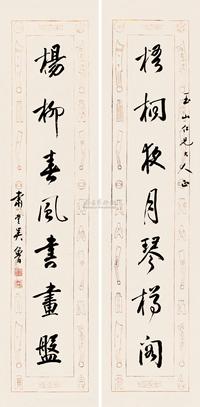 玉山仁兄大人正
梧桐夜月琴樽閣
楊柳春風書畫盤
肅堂吳魯